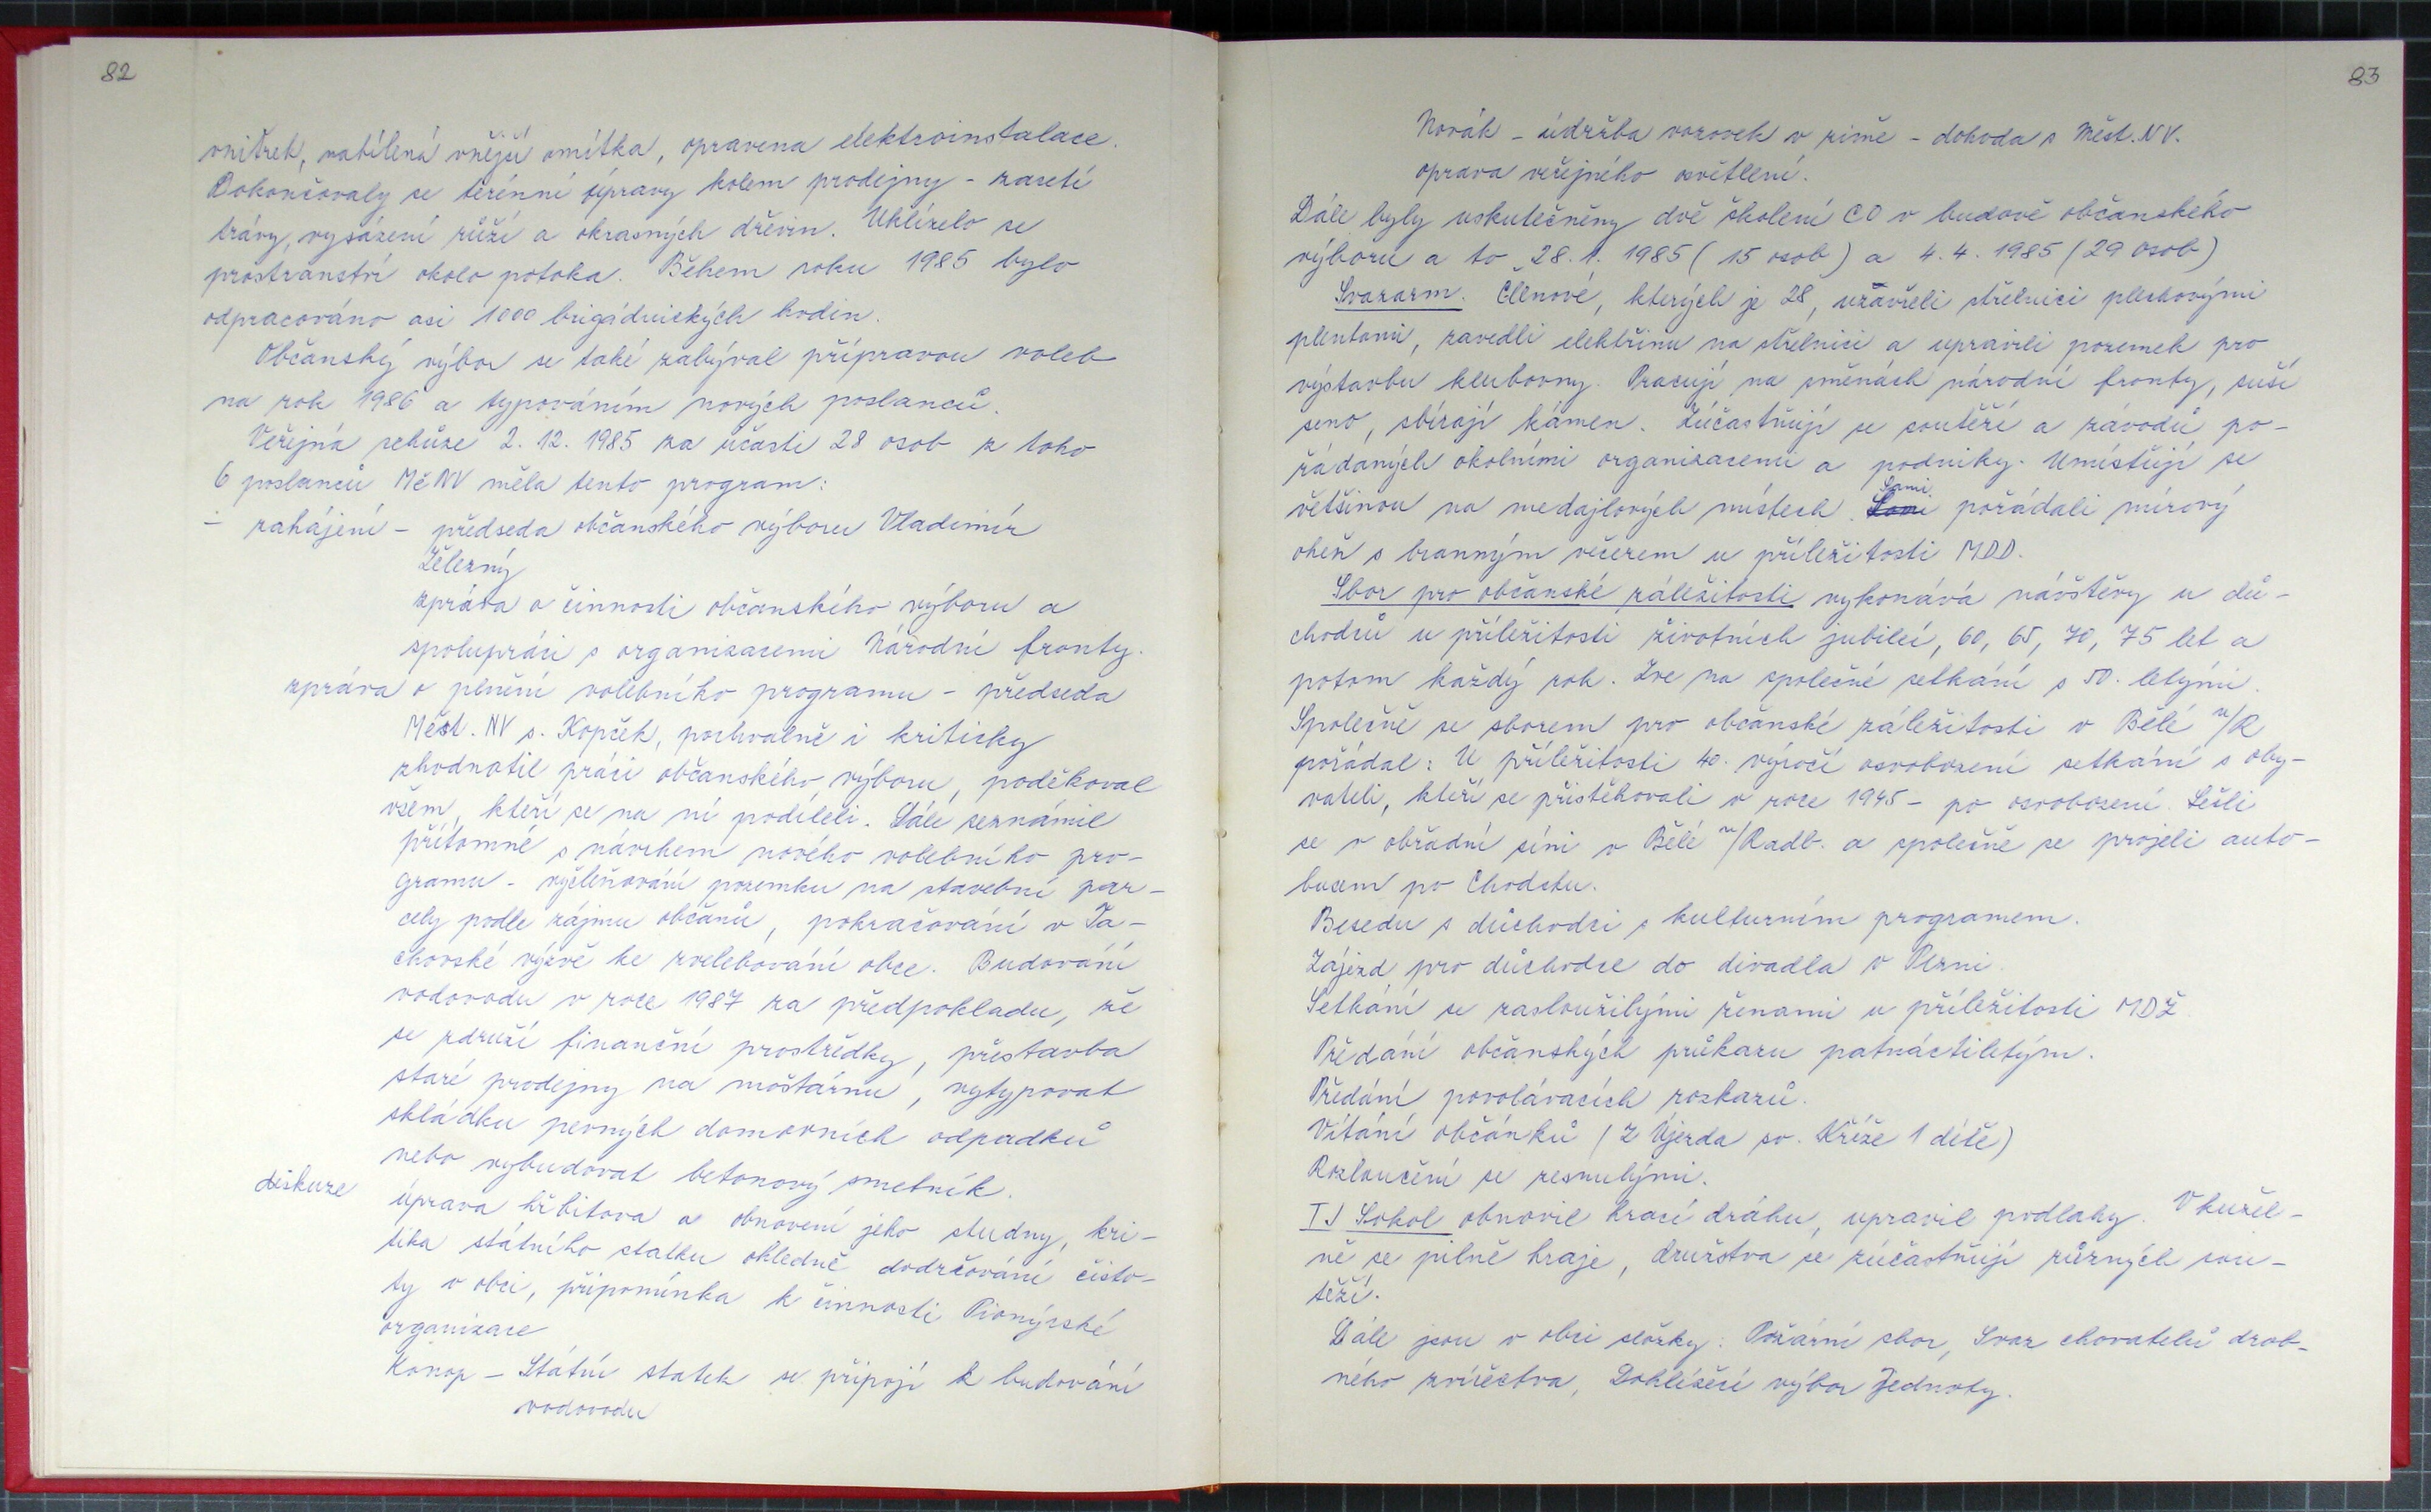 82
vnitřek, nabílená vnější omítka, opravena elektroinstalace.
Dokončovaly se terénní úpravy kolem prodejny - zasetí
trávy, vysázení růží a okrasných dřevin. Uklízelo se
prostranství okolo potoka. Během roku 1985 bylo
odpracováno asi 1000 brigádnických hodin.
Občanský výbor se také zabýval přípravou voleb
na rok 1986 a typováním nových poslanců.
Veřejná schůze 2. 12. 1985 za účasti 28 osob z toho
6 poslanců MěNV měla tento program:
- zahájení - předseda občanského výboru Vladimír
Železný
zpráva o činnosti občanského výboru a
spolupráci s organizacemi Národní fronty.
zpráva o plnění volebního programu - předseda
Měst. NV s. Kopček, pochvalně i kriticky
zhodnotil práci občanského výboru, poděkoval
všem, kteří se na ní podíleli. Dále seznámil
přítomné s návrhem nového volebního pro-
gramu - vyčleňování pozemku na stavební par-
cely podle zájmu občanů, pokračování v Ta-
chovské výzvě ke zvelebování obce. Budování
vodovodu v roce 1987 za předpokladu, že
se sdruží finanční prostředky, přestavba
staré prodejny na moštárnu, vytypovat
skládku pevných domovních odpadků
nebo vybudovat betonový smetník.
diskuze úprava hřbitova a obnovení jeho studny, kri-
tika státního statku ohledně dodržování čisto-
ty v obci, připomínka k činnosti Pionýrské
organizace
Konop - Státní statek se připojí k budování
vodovodu
83
Novák - údržba vozovek v zimě - dohoda s Měst. NV.
oprava veřejného osvětlení.
Dále byly uskutečněny dvě školení CO v budově občanského
výboru a to 28. 1. 1985 (15 osob) a 4. 4. 1985 (29 osob)
Svazarm. Členové, kterých je 28, uzavřeli střelnici plechovými
plentami, zavedli elektřinu na střelnici a upravili pozemek pro
výstavbu klubovny. Pracují na směnách národní fronty, suší
seno, sbírají kámen. Zúčastňují se soutěží a závodů po-
řádaných okolními organizacemi a podniky. Umísťují se
většinou na medajlových místech. Sami pořádali mírový
oheň s branným večerem u příležitosti MDD.
Sbor pro občanské záležitosti vykonává návštěvy u dů-
chodců u příležitosti životních jubileí, 60, 65, 70, 75 let a
potom každý rok. Zve na společné setkání s 50. letými.
Společně se sborem pro občanské záležitosti v Bělé n/R
pořádal: U příležitosti 40. výročí osvobození setkání s oby-
vateli, kteří se přistěhovali v roce 1945 - po osvobození. Sešli
se v obřadní síni v Bělé n/Radb. a společně se projeli auto-
busem po Chodsku.
Besedu s důchodci s kulturním programem.
Zájezd pro důchodce do divadla v Plzni.
Setkání se zasloužilými ženami u příležitosti MDŽ
Předání občanských průkazu patnáctiletým.
Předání povolávacích rozkazů.
Vítání občánků (z Újezda sv. Kříže 1 dítě)
Rozloučení se zesnulými.
TJ Sokol obnovil hrací dráhu, upravil podlahy. V kužel-
ně se pilně hraje, družstva se zúčastňují různých sou-
těží.
Dále jsou v obci složky: Požární sbor, Svaz chovatelů drob-
ného zvířectva, Dohlížecí výbor Jednoty.